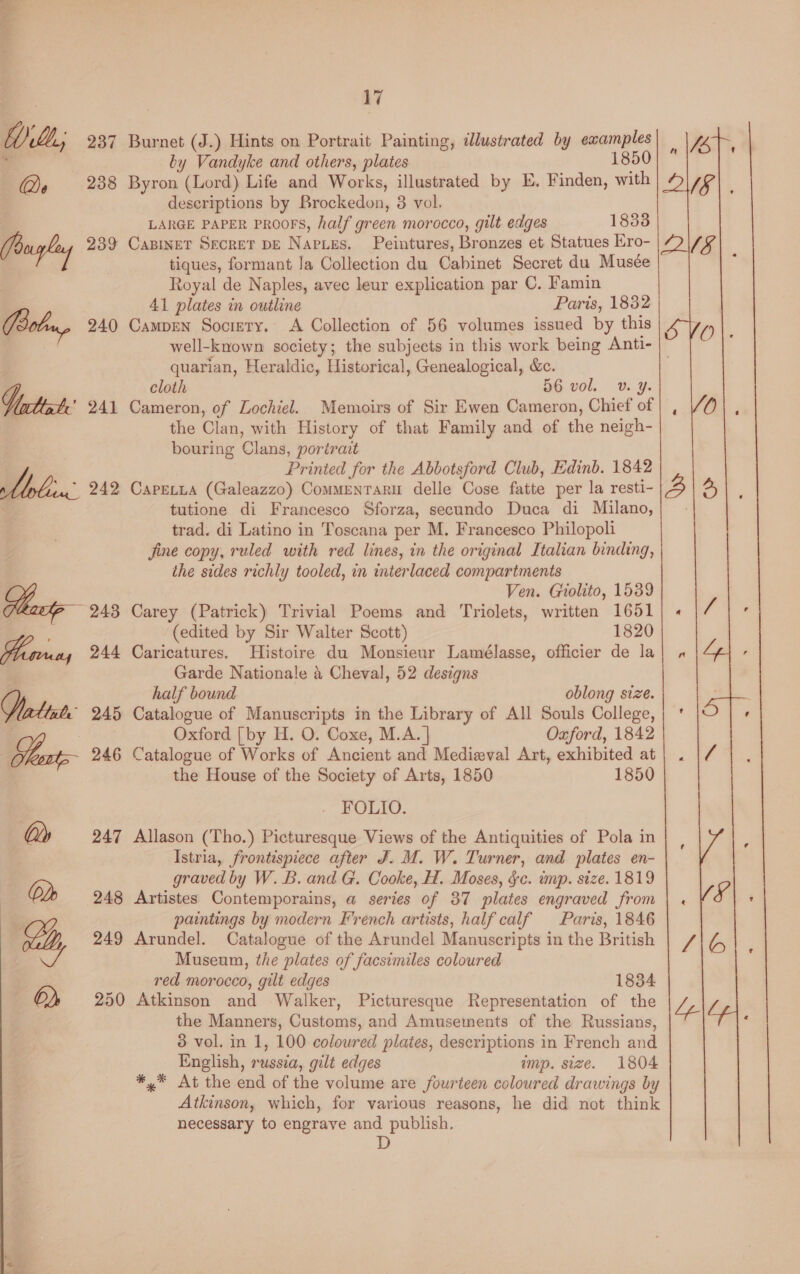 17
Willis 237 Burnet (J.) Hints on Portrait Painting, illustrated by examples
by Vandyke and others, plates 1850
Do 238 Byron (Lord) Life and Works, illustrated by E. Finden, with 2 18
descriptions by Brockedon, 3 vol.
LARGE PAPER PROOFS, half green morocco, gilt edges 1833
Bagley 239 CABINET SECRET DE NAPLES. Peintures, Bronzes et Statues Ero- 2 18
tiques, formant la Collection du Cabinet Secret du Musée
Royal de Naples, avec leur explication par C. Famin
41 plates in outline Paris, 1832
Bohn 240 CAMDEN SOCIETY. A Collection of 56 volumes issued by this 5 10
well-known society; the subjects in this work being Anti-
quarian, Heraldic, Historical, Genealogical, &c.
cloth 56 vol. v. y.
Nattali 241 Cameron, of Lochiel. Memoirs of Sir Ewen Cameron, Chief of 10
the Clan, with History of that Family and of the neigh-
bouring Clans, portrait
Printed for the Abbotsford Club, Edinb. 1842
Molini 242 CAPELLA (Galeazzo) COMMENTARII delle Cose fatte per la resti- 3 3
tutione di Francesco Sforza, secundo Duca di Milano,
trad. di Latino in Toscana per M. Francesco Philopoli
fine copy, ruled with red lines, in the original Italian binding,
the sides richly tooled, in interlaced compartments
Ven. Giolito, 1539
243 Carey (Patrick) Trivial Poems and Triolets, written 1651 1
(edited by Sir Walter Scott) 1820
244 Caricatures. Histoire du Monsieur Lamélasse, officier de la 4
Garde Nationale à Cheval, 52 designs
half bound oblong size.
Nattali 245 Catalogue of Manuscripts in the Library of All Souls College, 5
Oxford [by H. O. Coxe, M.A.] Oxford, 1842
246 Catalogue of Works of Ancient and Mediæval Art, exhibited at 1
the House of the Society of Arts, 1850 1850
FOLIO.
Do 247 Allason (Tho.) Picturesque Views of the Antiquities of Pola in 7
Istria, frontispiece after J. M. W. Turner, and plates en-
graved by W. B. and G. Cooke, H. Moses, &c. imp. size. 1819
Do 248 Artistes Contemporains, a series of 37 plates engraved from 18
paintings by modern French artists, half calf Paris, 1846
249 Arundel. Catalogue of the Arundel Manuscripts in the British 1 6
Museum, the plates of facsimiles coloured
red morocco, gilt edges 1834
Do 250 Atkinson and Walker, Picturesque Representation of the 4 4
the Manners, Customs, and Amusements of the Russians,
3 vol. in 1, 100 coloured plates, descriptions in French and
English, russia, gilt edges imp. size. 1804
*** At the end of the volume are fourteen coloured drawings by
Atkinson, which, for various reasons, he did not think
necessary to engrave and publish.
D